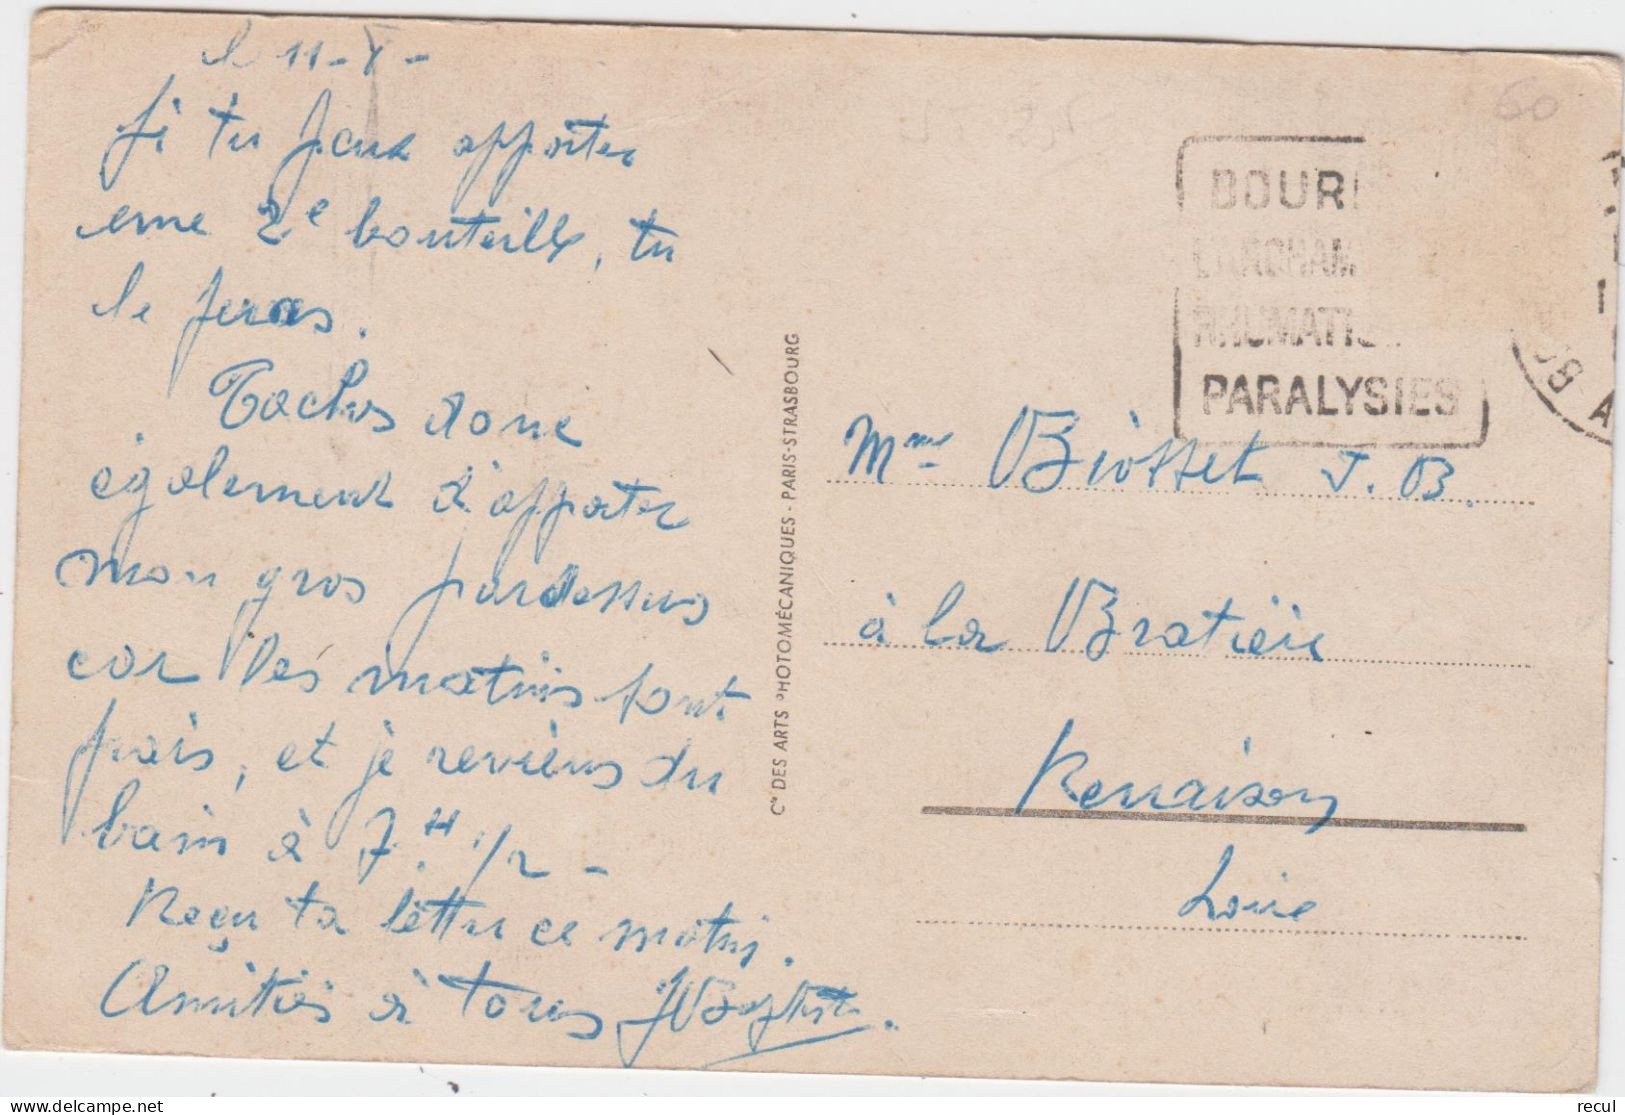 le 11-X-
Si tu peux apporter
une 2e bouteille, tu
le feras.
Taches donc
également d'apporter
mon gros pardessus
car les matins sont
frais, et je reviens du
bain à 7.H 1/2 -
Reçu ta lettre ce matin.
Amitiés à tous JBaptiste.
Cie DES ARTS PHOTOMÉCANIQUES - PARIS-STRASBOURG
60
BOUR
L'ARCHAM
RHUMATIS
PARALYSIES
Mme Biosset J.B.
à la Bratière
Renaison
Loire
recul